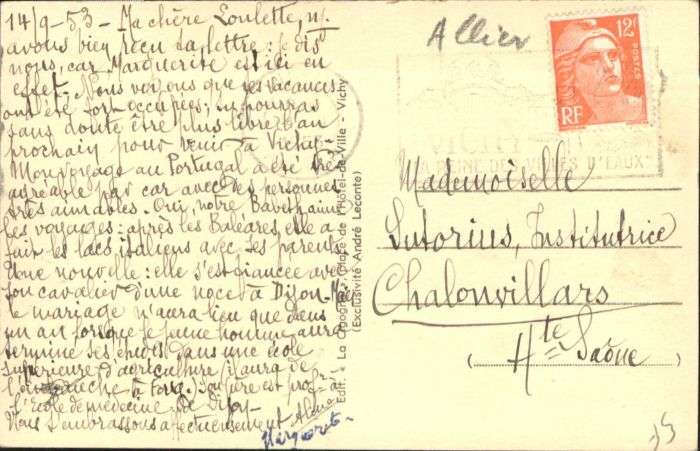 14/9-53 - Ma chère Loulette, ns.
avons bien reçu ta lettre : je dis
nous, car Marguerite est ici en
effet. Nous voyons que tes vacances
ont été fort occupées ; tu pourras
sans doute être plus libre l'an
prochain pour venir à Vichy.
Mon voyage au Portugal a été très
agréable par car avec des personnes
très aimables. Oui, notre Babeth aime
les voyages : après les Baléares, elle a
fait les lacs italiens avec ses parents.
Une nouvelle : elle s'est fiancée avec
son cavalier d'une noce à Dijon. Mais
le mariage n'aura lieu que dans
un an lorsque le jeune homme aura
terminé ses études dans une école
supérieure d'agriculture (il aura de
l'ouvrage à ) Son père est prof. à
l'école de médecine de Dijon -
Nous t'embrassons affectueusement
Marguerite
Edit. La Cigogne, Place de l'Hôtel-de-Ville - Vichy
(Exclusivité André Leconte)
Allier
12F
POSTES
RF
VICHY
LA REINE DES VILLES D'EAUX
Mademoiselle
Sutorius, Institutrice
Chalonvillars
(Hte Saône)